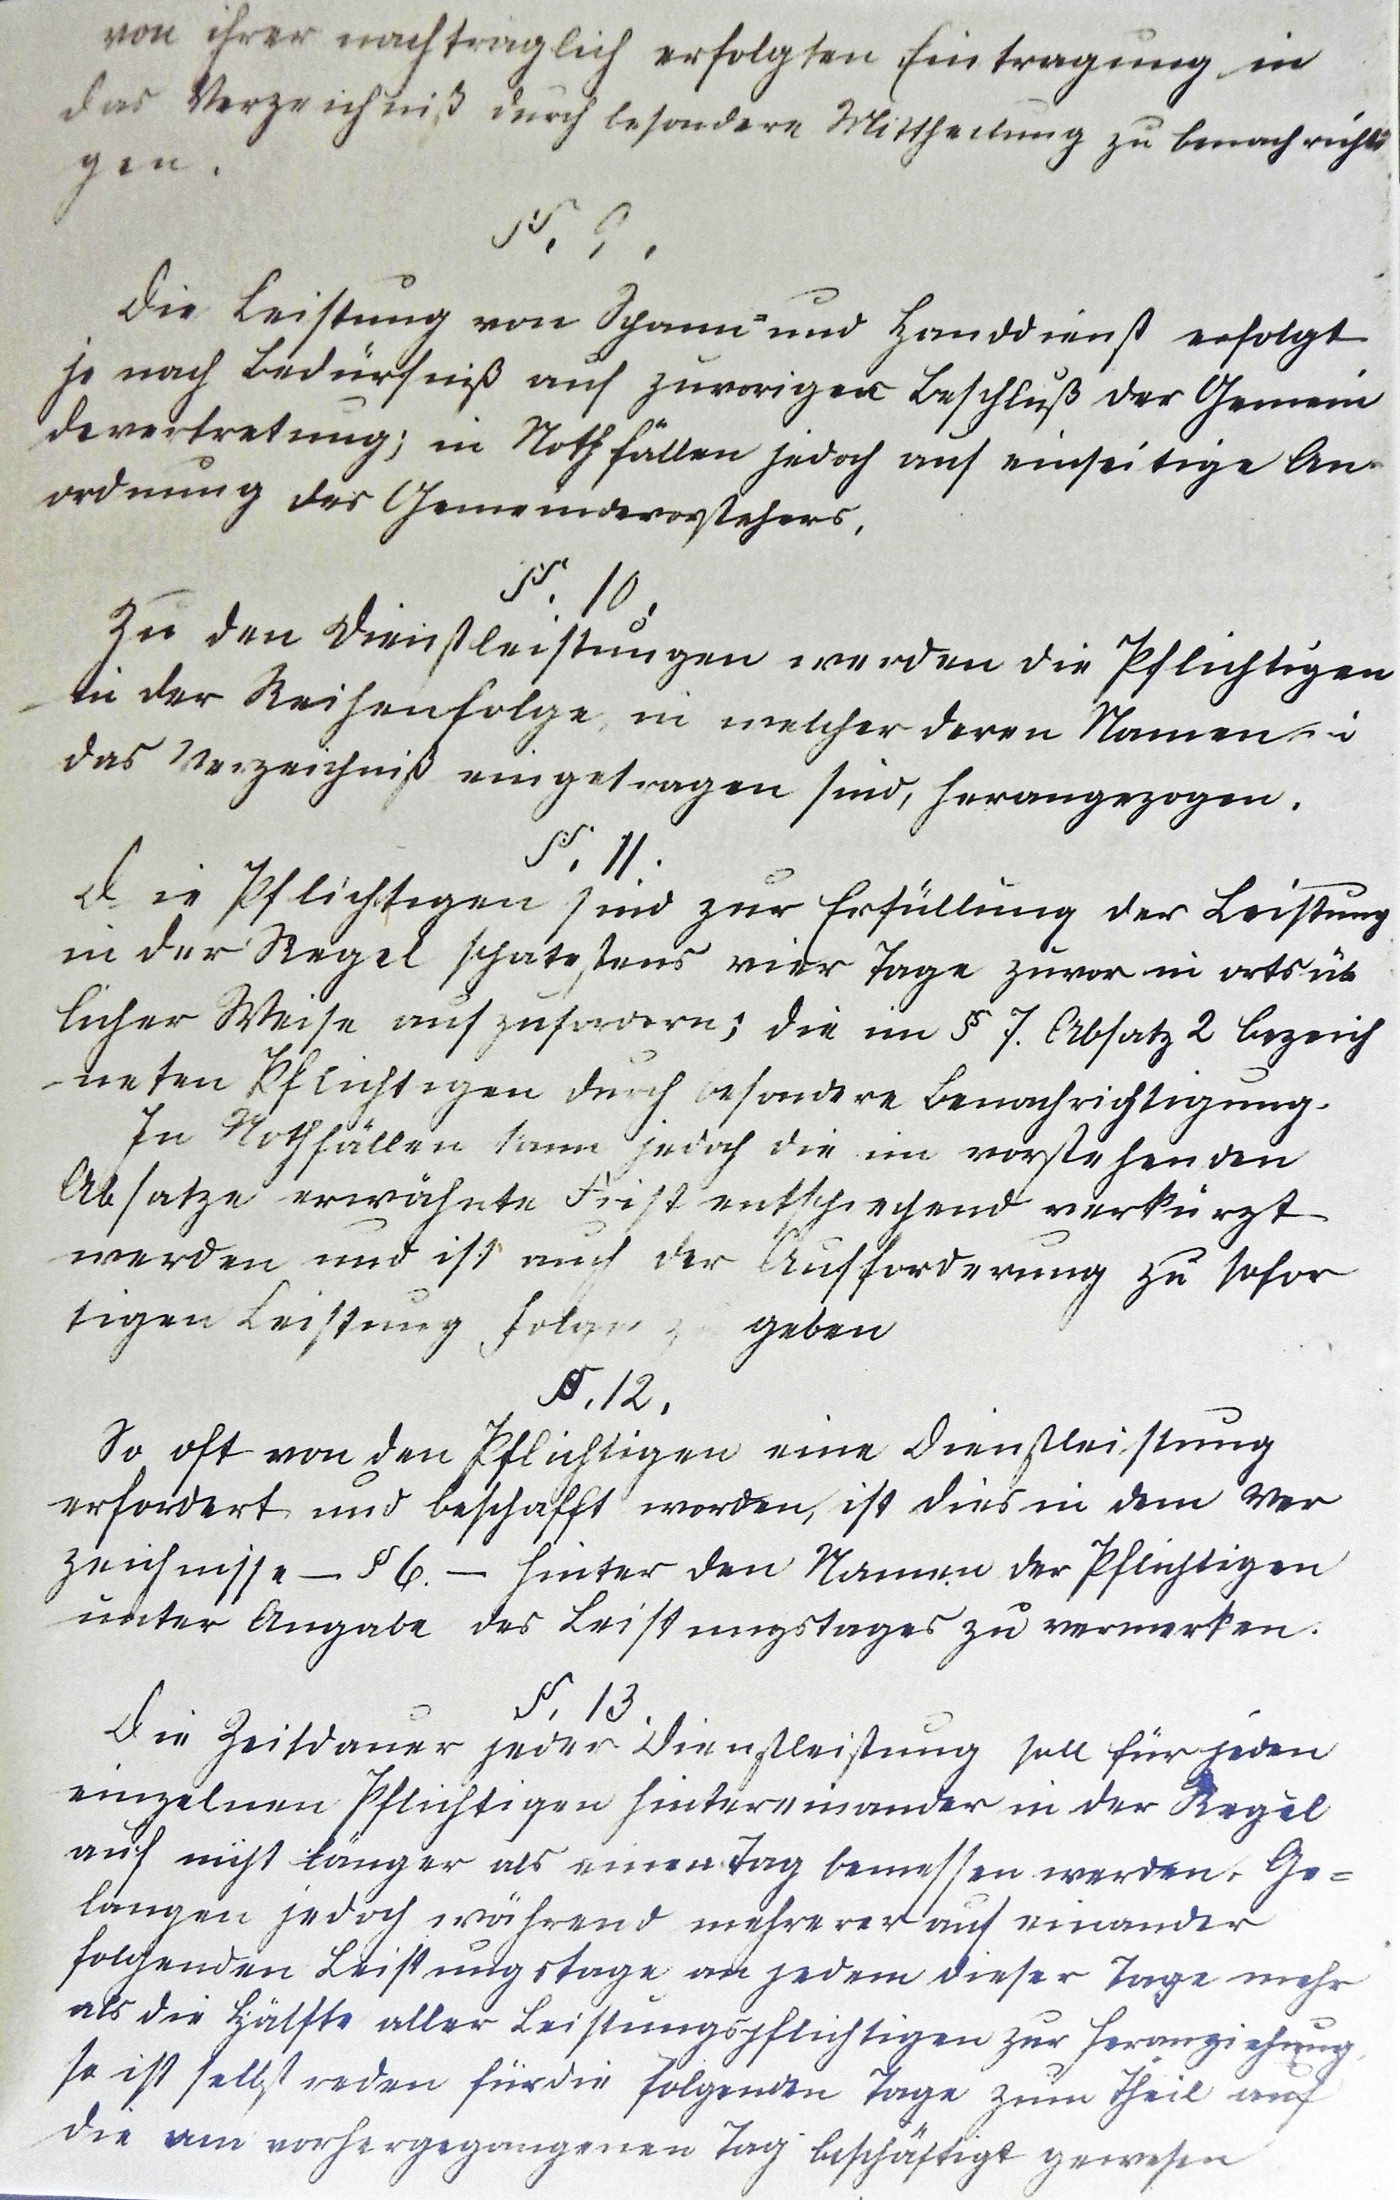 von ihrer nachträglich erfolgten Eintragung in
das Verzeichniß durch besondere Mittheilung zu benachrichti
gen.
§. 9.
Die Leistung von Spann= und Handdienst erfolgt
je nach Bedürfniß auf zuvorigen Beschluß der Gemein
devertretung; in Nothfällen jedoch auf einseitige An-
ordnung des Gemeindevorstehers.
§. 10.
Zu den Dienstleistungen werden die Pflichtigen
in der Reihenfolge, in welcher deren Namen i
das Verzeichniß eingetragen sind, herangezogen.
§. 11.
Die Pflichtigen sind zur Erfüllung der Leistung
in der Regel spätestens vier Tage zuvor in ortsüb
licher Weise aufzufordern; die im § 7. Absatz 2 bezeich
-neten Pflichtigen durch besondere Benachrichtigung.
In Nothfällen kann jedoch die im vorstehenden
Absatze erwähnte Frist entsprechend verkürzt
werden und ist auch der Aufforderung zu sofor
tigen Leistung Folge zu geben
§. 12.
So oft von den Pflichtigen eine Dienstleistung
erfordert und beschafft worden, ist dies in dem Ver
zeichnisse — § 6. — hinter den Namen der Pflichtigen
unter Angabe des Leistungstages zu vermerken.
§. 13.
Die Zeitdauer jeder Dienstleistung soll für jeden
einzelnen Pflichtigen hintereinander in der Regel
auf nicht länger als einen Tag bemessen werden. Ge=
langen jedoch während mehrerer auf einander
folgenden Leistungstage an jedem dieser Tage mehr
als die Hälfte aller Leistungspflichtigen zur Heranziehung,
so ist selbst reden für die folgenden Tage zum Theil auf
die am vorhergegangenen Tag beschäftigt gewesen